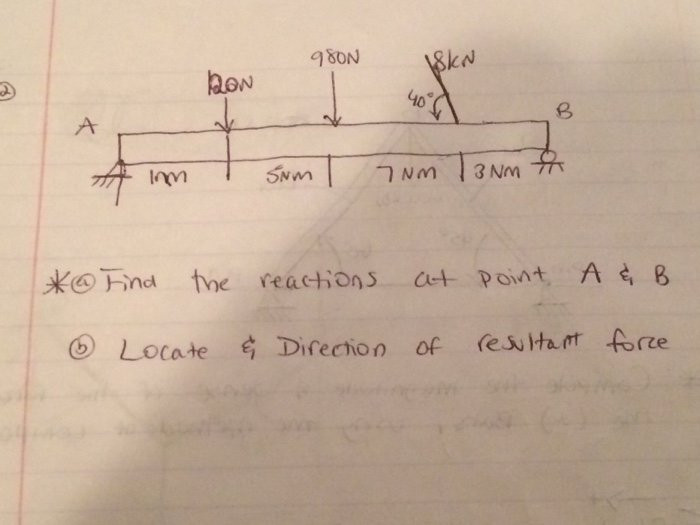 ②
980N
8kN
120N
40°
A
B
1nm
5Nm
7 Nm
3 Nm
*ⓐ Find the reactions at point A & B
ⓑ Locate & Direction of resultant force